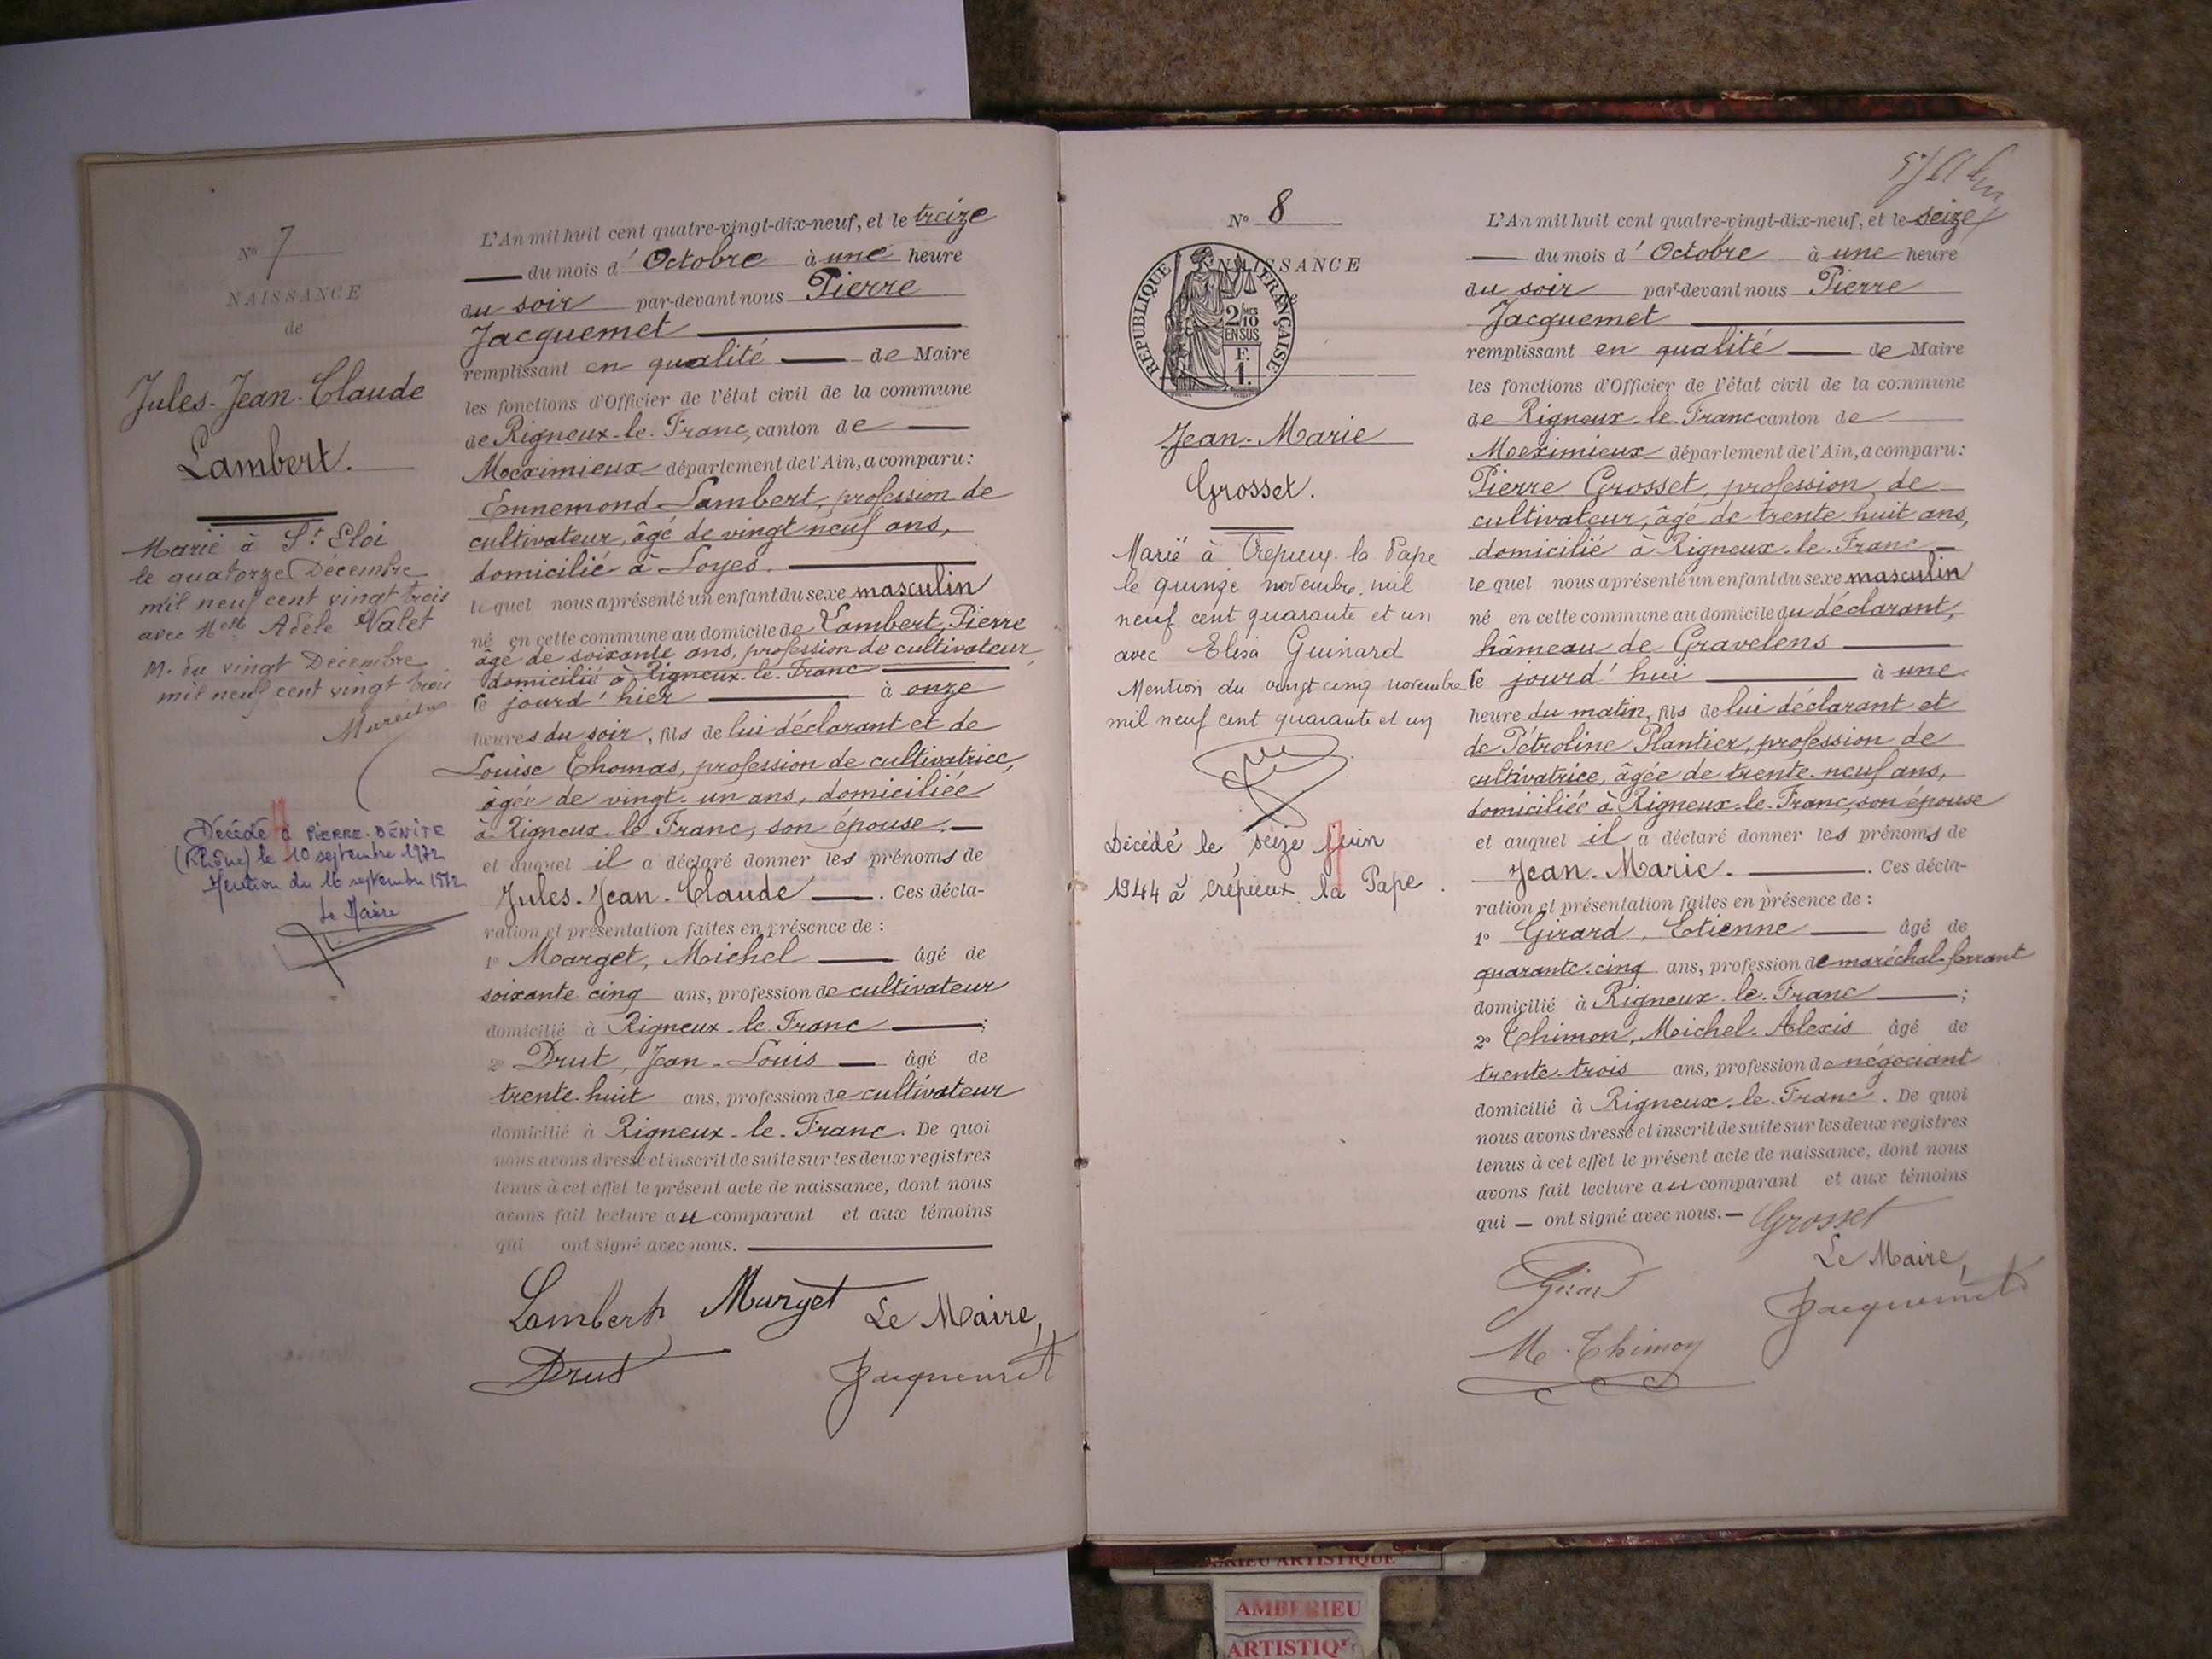 N° 7
NAISSANCE
de
Jules-Jean-Claude
Lambert.
Marié à St Eloi
le quatorze Décembre
mil neuf cent vingt trois
avec Melle Adèle Valet
M. du vingt Décembre
mil neuf cent vingt trois
Décédé à PIERRE-BÉNITE
(Rhône) le 10 septembre 1972
Mention du 16 septembre 1972
Le Maire
L'An mil huit cent quatre-vingt-dix-neuf, et le treize
du mois d'Octobre à une heure
du soir par-devant nous Pierre
Jacquemet
remplissant en qualité de Maire
les fonctions d'Officier de l'état civil de la commune
de Rigneux-le-Franc, canton de
Meximieux département de l'Ain, a comparu:
Ennemond Lambert, profession de
cultivateur, âgé de vingt neuf ans,
domicilié à Loyes.
le quel nous a présenté un enfant du sexe masculin
né en cette commune au domicile de Lambert, Pierre
âgé de soixante ans, profession de cultivateur
domicilié à Rigneux-le-Franc
le jourd'hier à onze
heures du soir, fils de lui déclarant et de
Louise Thomas, profession de cultivatrice,
âgée de vingt-un ans, domiciliée
à Rigneux-le-Franc, son épouse.
et auquel il a déclaré donner les prénoms de
Jules-Jean-Claude. Ces décla-
ration et présentation faites en présence de :
1° Marget, Michel âgé de
soixante cinq ans, profession de cultivateur
domicilié à Rigneux-le-Franc ;
2° Drut, Jean-Louis âgé de
trente-huit ans, profession de cultivateur
domicilié à Rigneux-le-Franc. De quoi
nous avons dressé et inscrit de suite sur les deux registres
tenus à cet effet le présent acte de naissance, dont nous
avons fait lecture au comparant et aux témoins
qui ont signé avec nous.
Lambert Murget Le Maire,
Drut Jacquemet
N° 8
NAISSANCE
RÉPUBLIQUE FRANÇAISE
2 MES
10
EN SUS
F.
1.
Jean-Marie
Grosset.
Marié à Crepieux la Pape
le quinze novembre mil
neuf cent quarante et un
avec Elisa Guinard
Mention du vingt cinq novembre
mil neuf cent quarante et un
Décédé le seize Juin
1944 à Crépieux la Pape.
L'An mil huit cent quatre-vingt-dix-neuf, et le seize
du mois d'Octobre à une heure
du soir par-devant nous Pierre
Jacquemet
remplissant en qualité de Maire
les fonctions d'Officier de l'état civil de la commune
de Rigneux-le-Franc canton de
Meximieux département de l'Ain, a comparu:
Pierre Grosset, profession de
cultivateur, âgé de trente-huit ans,
domicilié à Rigneux-le-Franc
le quel nous a présenté un enfant du sexe masculin
né en cette commune au domicile du déclarant,
hâmeau de Gravelens
le jourd'hui à une
heure du matin, fils de lui déclarant et
de Pétroline Plantier, profession de
cultivatrice, âgée de trente-neuf ans,
domiciliée à Rigneux-le-Franc, son épouse
et auquel il a déclaré donner les prénoms de
Jean-Marie. Ces décla-
ration et présentation faites en présence de :
1° Girard, Etienne âgé de
quarante-cinq ans, profession de maréchal-ferrant
domicilié à Rigneux-le-Franc ;
2° Thimon, Michel-Alexis âgé de
trente-trois ans, profession de négociant
domicilié à Rigneux-le-Franc. De quoi
nous avons dressé et inscrit de suite sur les deux registres
tenus à cet effet le présent acte de naissance, dont nous
avons fait lecture au comparant et aux témoins
qui ont signé avec nous. Grosset
Le Maire,
Girard Jacquemet
M. Thimon
ARTISTIQUE
AMBERIEU